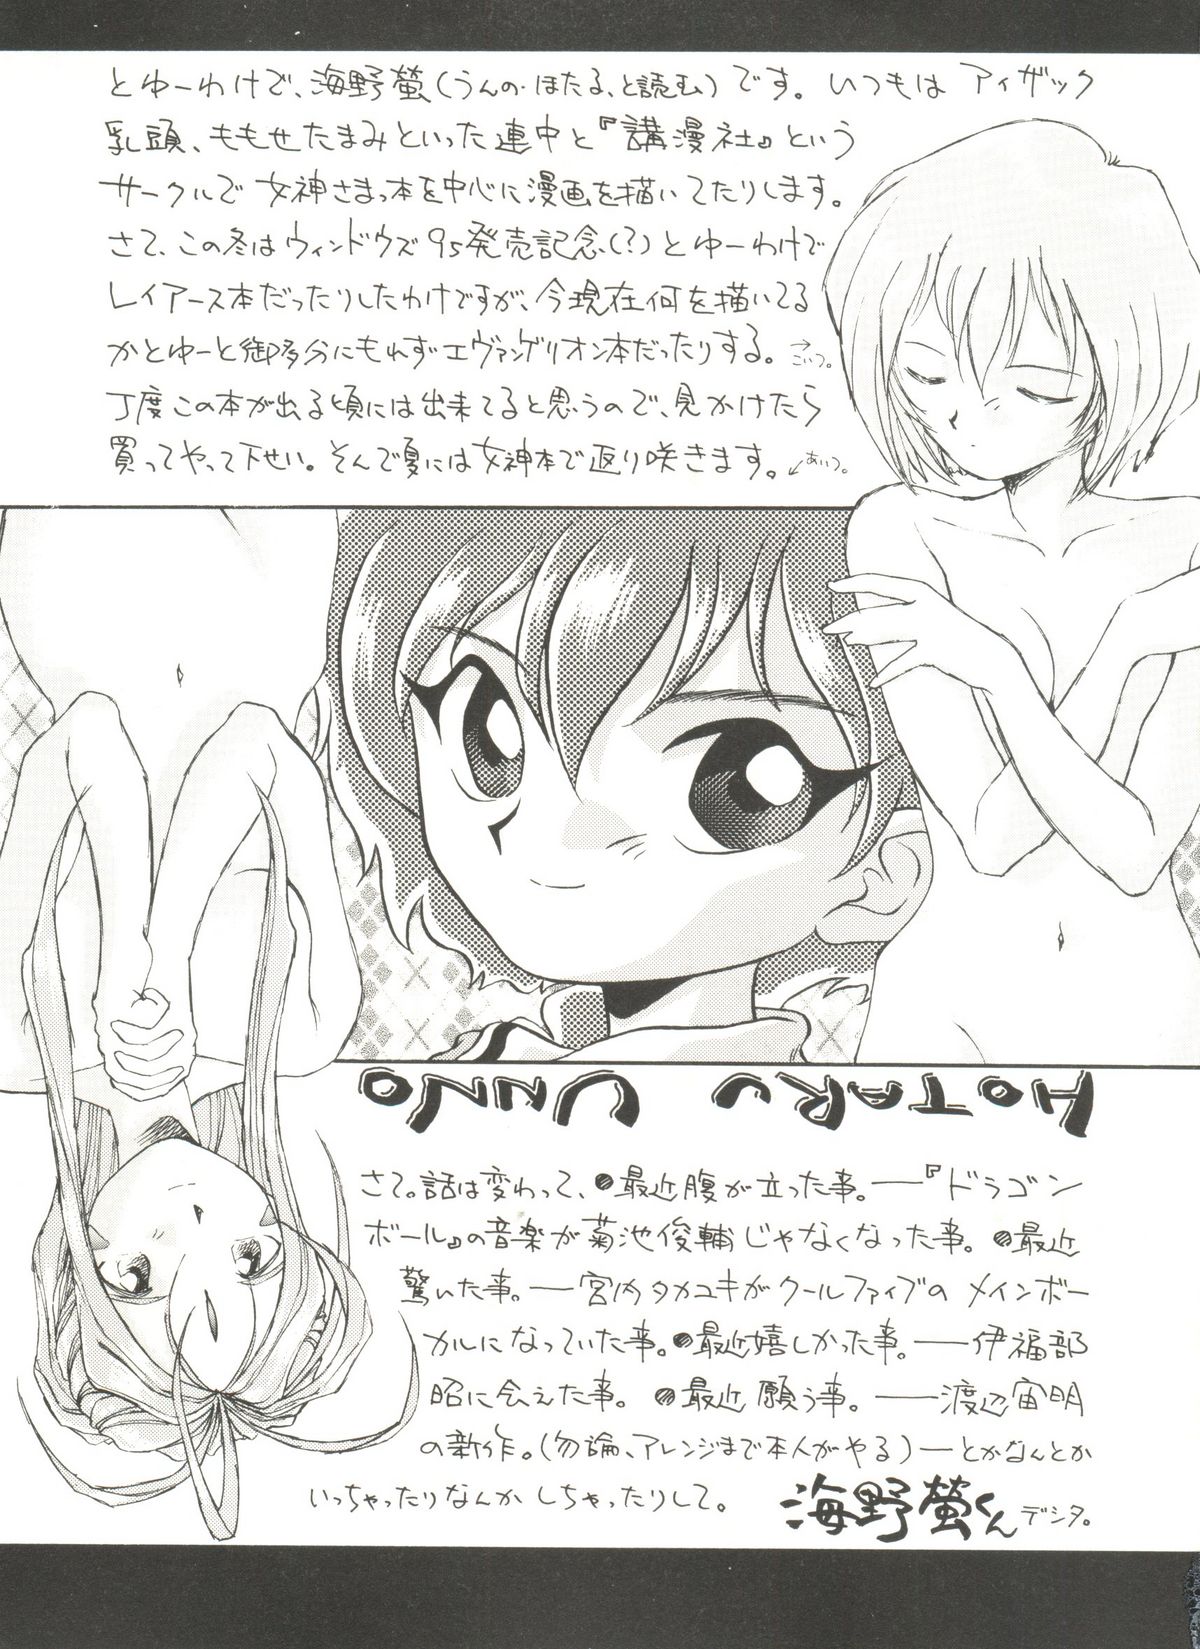 とゆーわけで、海野螢(うんの・ほたる、と読む)です。いつもは アィザック
乳頭、ももせたまみといった連中と『講漫社』という
サークルで 女神さまっ本を中心に漫画を描いてたりします。
さて、この冬はウィンドウズ95発売記念(?)とゆーわけで
レイアース本だったりしたわけですが、今現在何を描いてる
かとゆーと御多分にもれずエヴァンゲリオン本だったりする。→こいつ。
丁度この本が出る頃には出来てると思うので、見かけたら
買ってやって下せい。そんで夏には女神本で返り咲きます。←あいつ。
HOTARU UNNO
さて。話は変わって、●最近腹が立った事。——『ドラゴン
ボール』の音楽が菊池俊輔じゃなくなった事。●最近
驚いた事。——宮内タカユキがクールファイブの メインボー
カルになっていた事。●最近嬉しかった事。——伊福部
昭に会えた事。 ●最近 願う事。——渡辺宙明
の新作。(勿論、アレンジまで本人がやる)——とかなんとか
いっちゃったりなんか しちゃったりして。 海野螢くん デシタ。